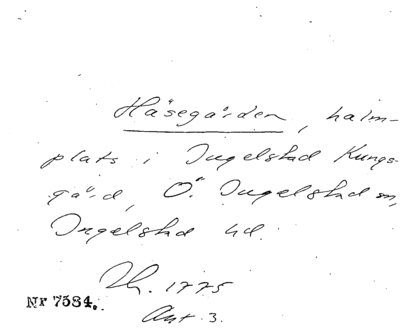 Håsegården, halm-
plats i Ingelstad Kungs-
gård, Ö. Ingelstad sn,
Ingelstad hd.
1775
Nr 7584.
Akt 3.